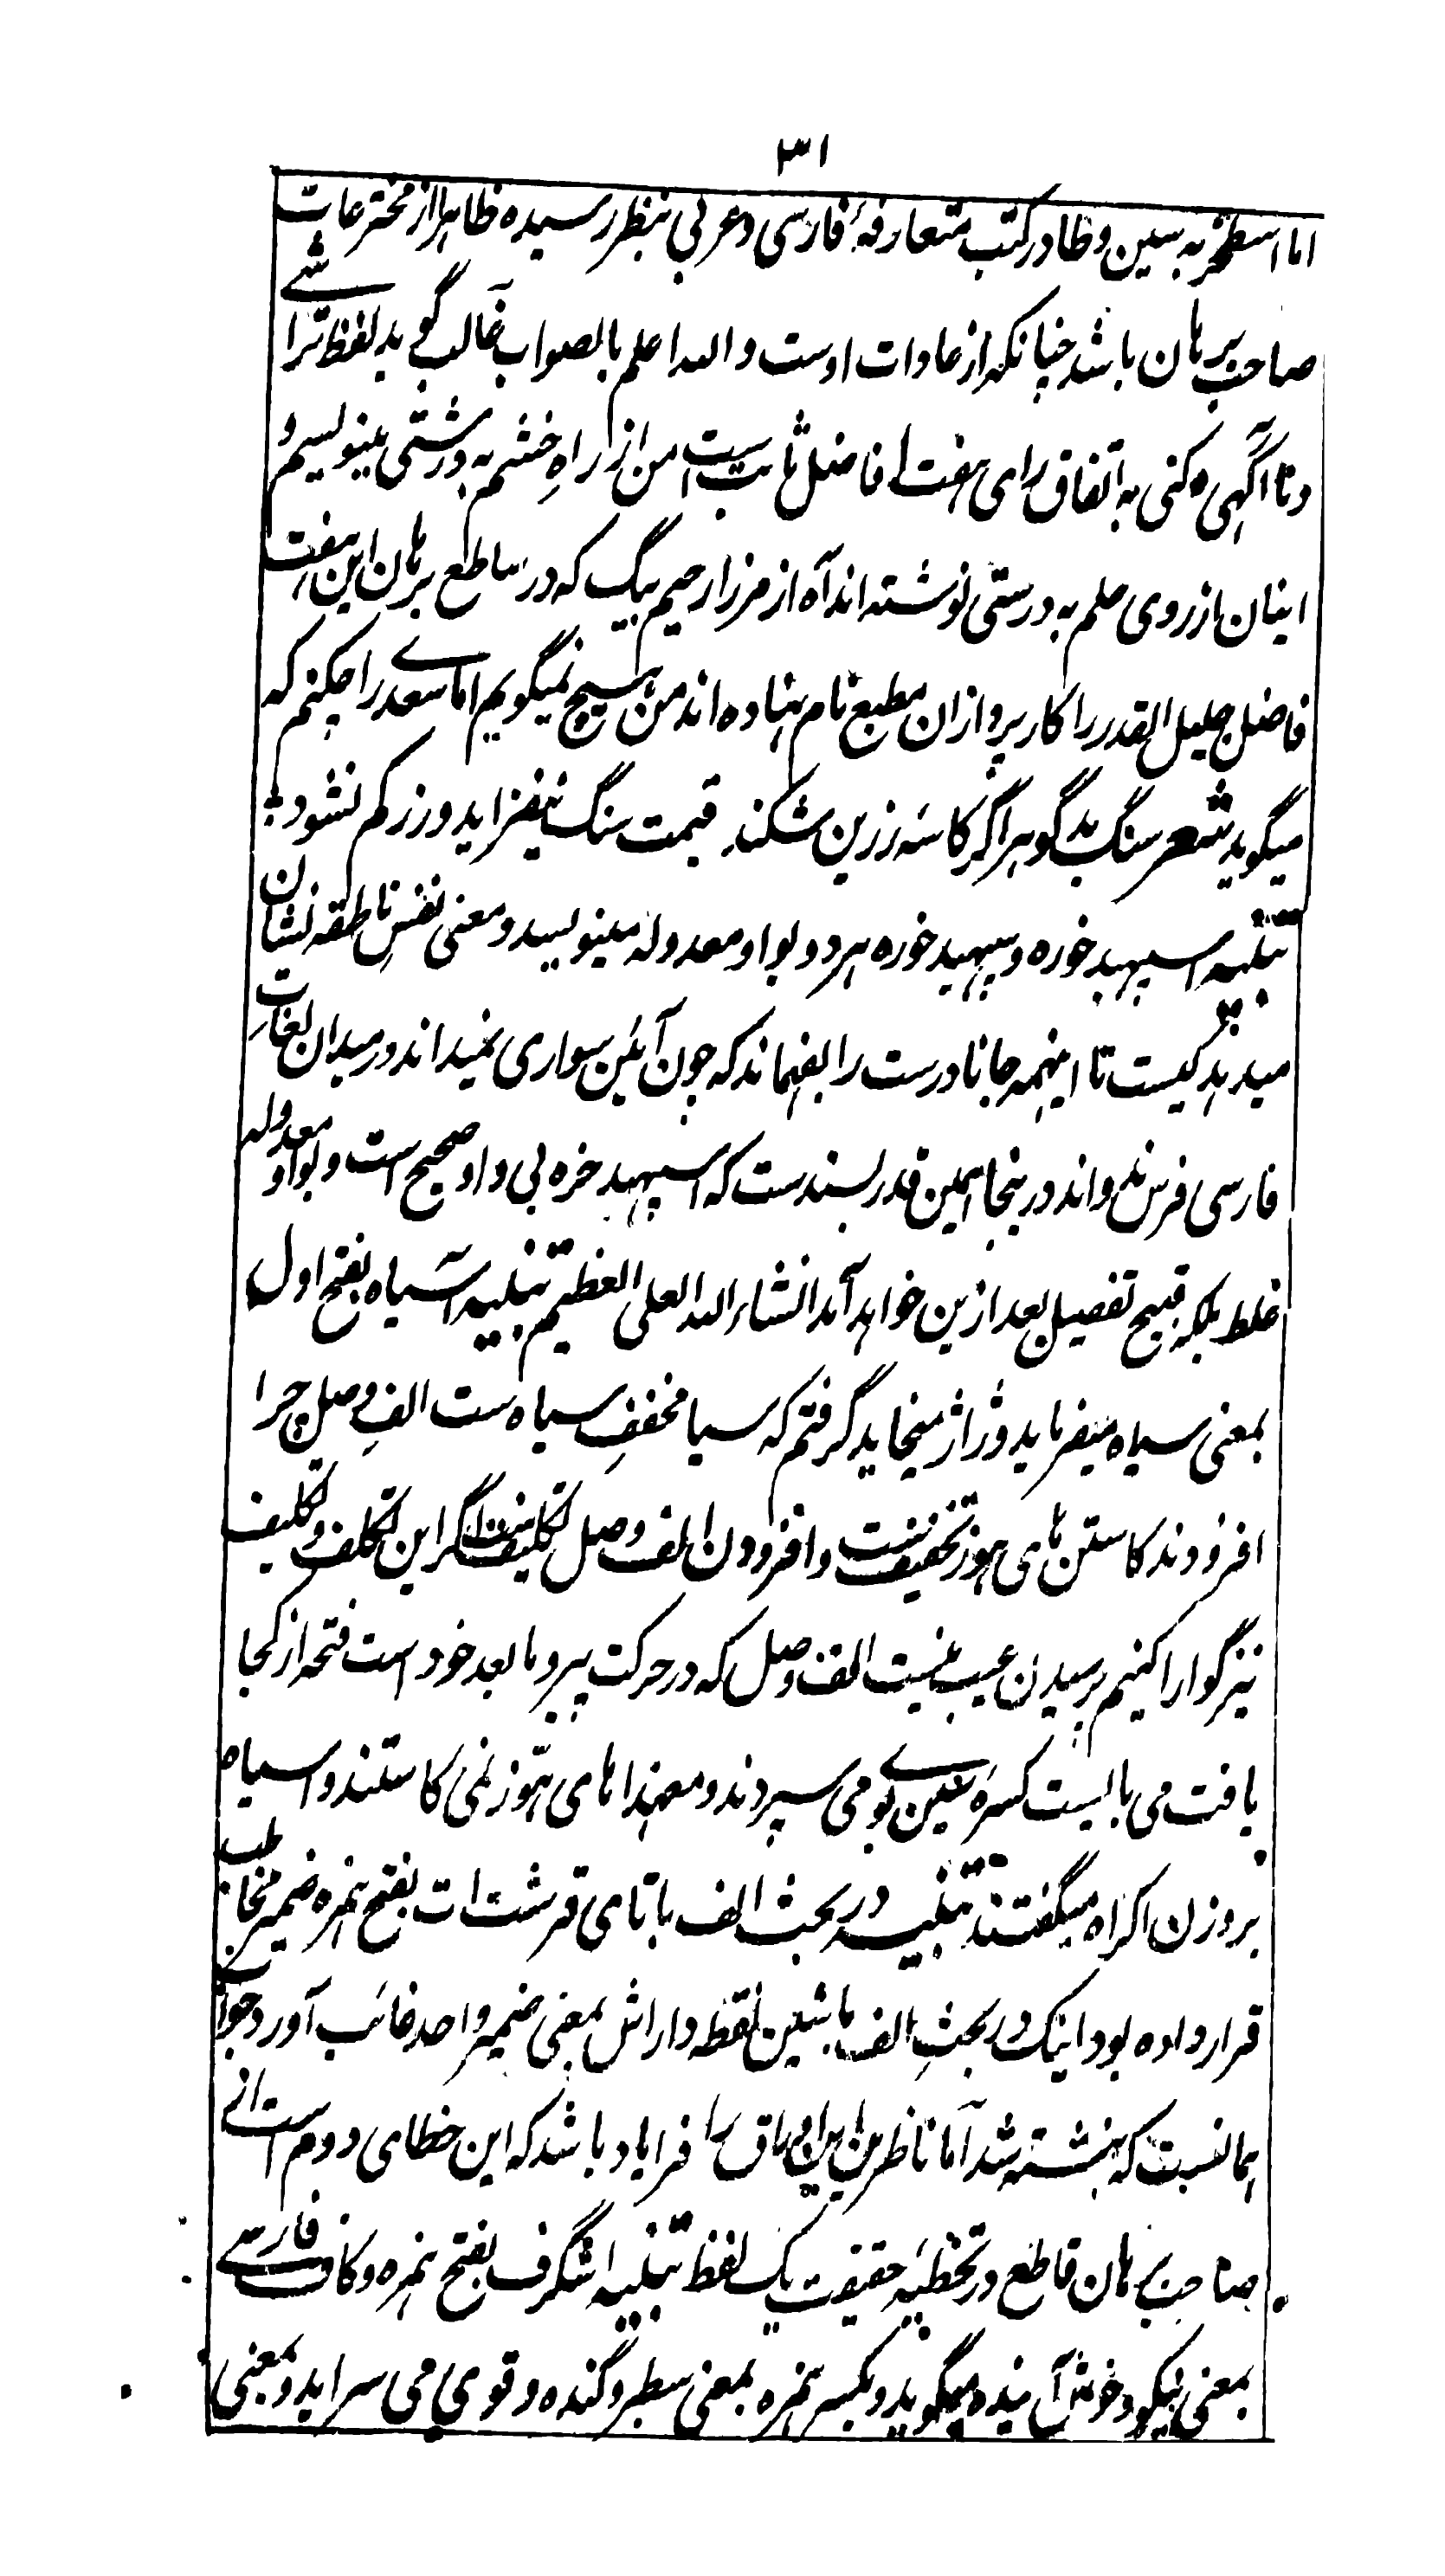 ۳۱
اما اسطخر به سین و ظا در کتب متعارفهٔ فارسی و عربی بنظر رسیده ظاہرا از مخترعات
صاحب برہان باشد چنانکه از عادات اوست و الله اعلم بالصواب غالب گوید لفظ ترا شے
و نا آگہی دکنی به اتفاق رای ہفت فاضل ثابت ست من از راهِ خشم به درشتی مینویسم و
اینان از روی حلم به درستی نوشته اند آه از مرزا رحیم بیگ که در ساطع برہان این ہفت
فاضل جلیل القدر را کارپردازان مطبع نام نہاده اند من ہیچ نمیگویم اما سعدے را چکنم که
میگوید شعر سنگ بد گوہر اگر کاسهٔ زرین شکند قیمت سنگ نیفزاید و زر کم نشود
تنبیه اسپہبد خوره و سپہبد خوره ہر دو بواو معدوله مینویسد و معنی نفسِ ناطقه نشان
میدہد کیست تا اینہمه جانا درست را بفہماند که چون آئین سواری نمیداند در میدان لغات
فارسی فرس ندواند درینجا ہمین قدر بسندست که اسپہبد خره بی واو صحیح است و بواو معدوله
غلط بلکه قبیح تفصیل بعد ازین خواہد آمد انشاء الله العلی العظیم تنبیه اسیاه بفتح اول
بمعنی سیاه میفرماید و ژاژ میخاید گرفتم که سیا مخففِ سیاه ست الفِ وصل چرا
افزودند کاستن ہای ہوز تخفیف ست و افزودن الف وصل تکلیف ست اگر این تکلف و تکلیف
نیز گوارا کنیم پرسیدن عیب نیست الف وصل که در حرکت پیرو ما بعد خود است فتحه از کجا
یافت می بایست کسرهٔ سین بوے می سپردند و معہذا ہای ہوّز نمی کاستند و اسیاه
بروزن اکراه میگفتند تنبیه در بحث الف با تای قرشت ات بفتح ہمزه ضمیر مخاطب
قرار داده بود اینک در بحثِ الف با شین نقطه دار اش بمعنی ضمیر واحد غائب آورد جواب
ہمانست که نبشته شد اما ناظرین را فرایاد باشد که این خطای دوم ست انے
صاحب برہان قاطع در تخطئهٔ حقیقت یک لفظ تنبیه اشگرف بفتح ہمزه و کاف فارسے
بمعنی نیکو و خوش آینده میگوید و بکسر ہمزه بمعنی سطبر و گنده و قوی می سراید و بمعنی